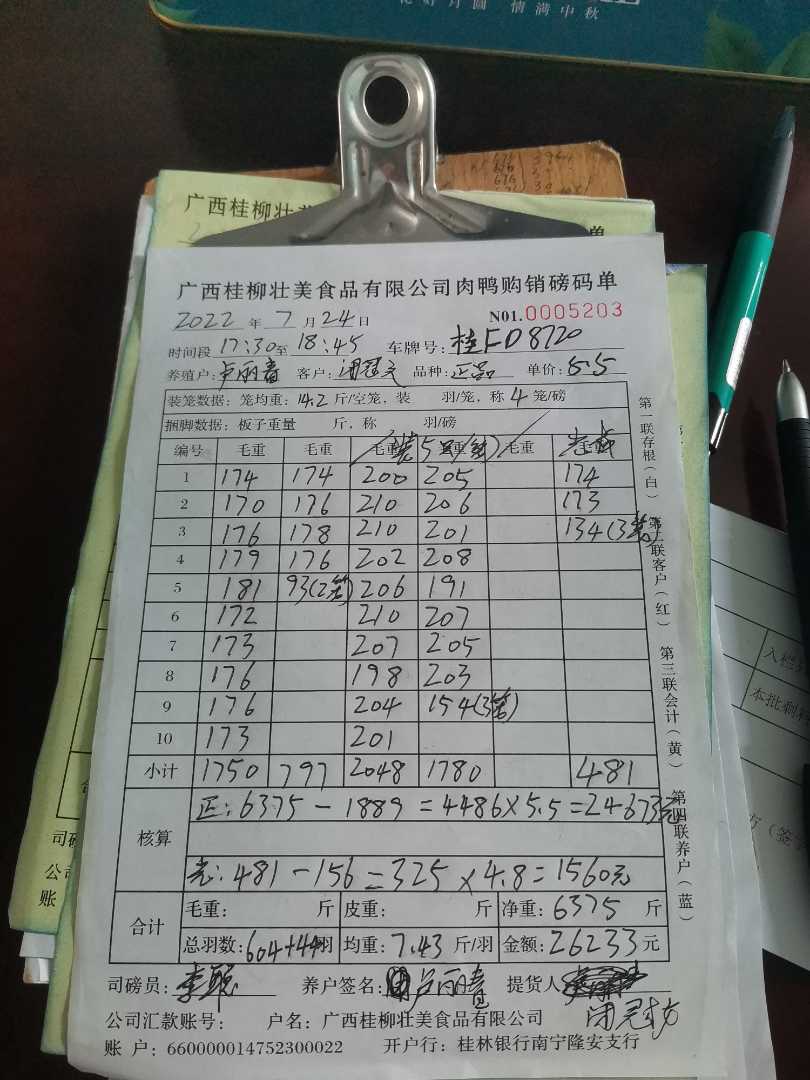 花好月圆 情满中秋
广西桂柳壮美
单
广西桂柳壮美食品有限公司肉鸭购销磅码单
2022 年 7 月 24 日 N01.0005203
时间段 17:30 至 18:45 车牌号: 桂FD8720
养殖户: 卢丽春 客户: 品种: 正品 单价: 5.5
装笼数据: 笼均重: 14.2 斤/空笼, 装 羽/笼, 称 4 笼/磅
捆脚数据: 板子重量 斤, 称 羽/磅
编号 毛重 毛重 毛重 毛重 毛重
1 174 174 200 205 174
2 170 176 210 206 173
3 176 178 210 201 134(3笼)
4 179 176 202 208
5 181 93(2笼) 206 191
6 172 210 207
7 173 207 205
8 176 198 203
9 176 204 154(3笼)
10 173 201
小计 1750 797 2048 1780 481
核算
正: 6375 - 1889 = 4486 × 5.5 = 24673元
光: 481 - 156 = 325 × 4.8 = 1560元
合计
毛重: 斤 皮重: 斤 净重: 6375 斤
总羽数: 604+44羽 均重: 7.43 斤/羽 金额: 26233 元
司磅员: 养户签名: 提货人
公司汇款账号: 户名: 广西桂柳壮美食品有限公司
账 户: 660000014752300022 开户行: 桂林银行南宁隆安支行
第一联存根(白) 第二联客户(红) 第三联会计(黄) 第四联养户(蓝)
司磅
公司
账
入栏
本批剩